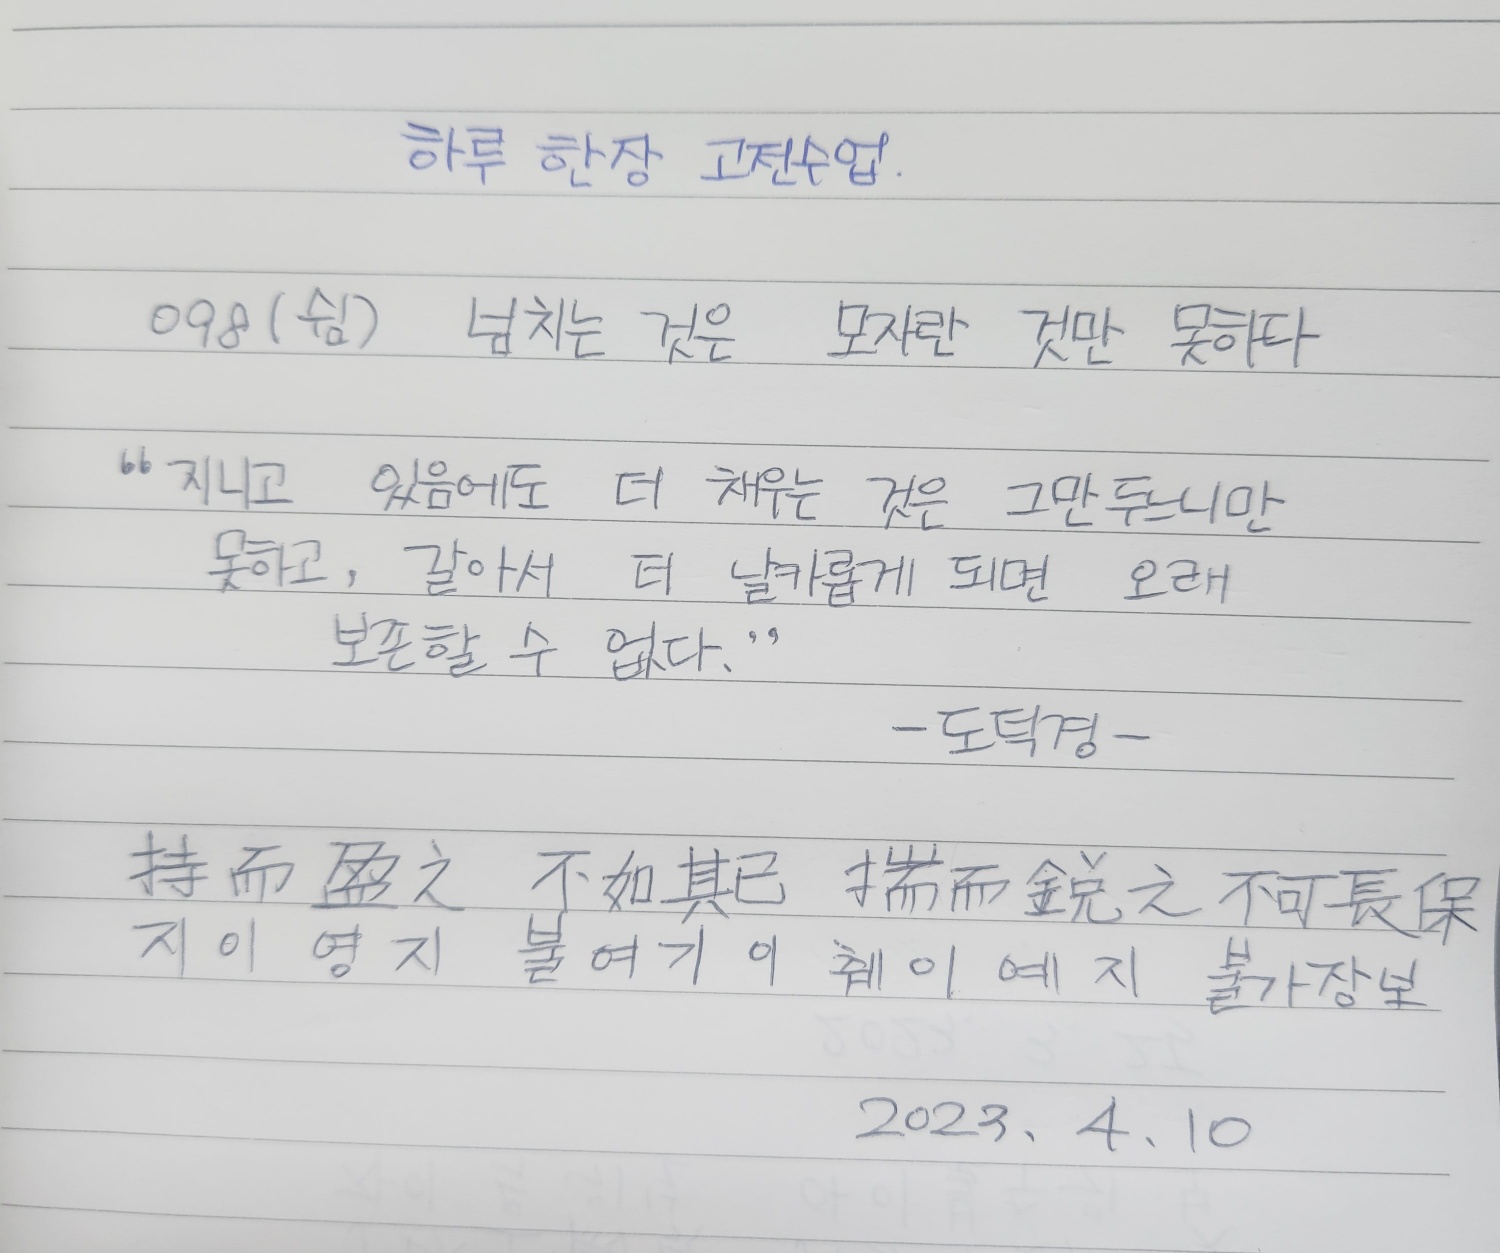 하루 한장 고전수업.
098(쉼) 넘치는 것은 모자란 것만 못하다
“지니고 있음에도 더 채우는 것은 그만두느니만
못하고, 갈아서 더 날카롭게 되면 오래
보존할 수 없다.”
-도덕경-
持而盈之 不如其已 揣而銳之 不可長保
지이영지 불여기이 췌이예지 불가장보
2023. 4. 10